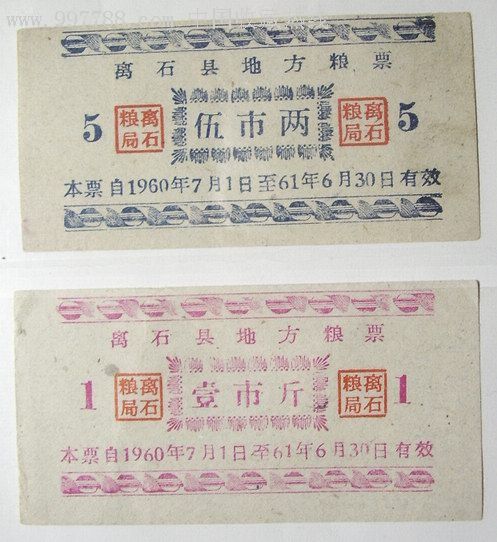 www.997788.com 中国收藏热线
离石县地方粮票
5 离石粮局 伍市两 离石粮局 5
本票自1960年7月1日至61年6月30日有效
离石县地方粮票
1 离石粮局 壹市斤 离石粮局 1
本票自1960年7月1日至61年6月30日有效